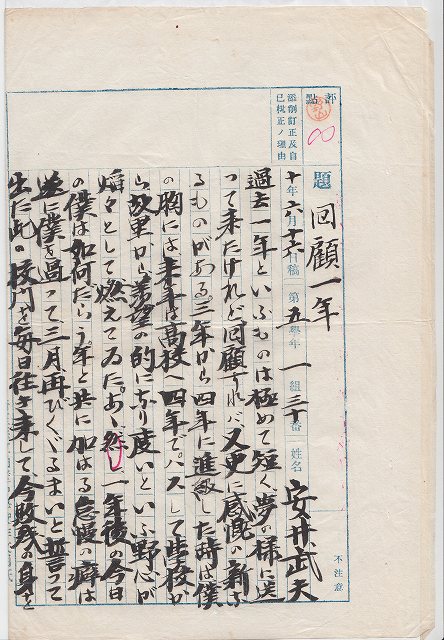 評點
添削訂正及自己批正ノ理由
題 回顧一年
十年六月十六日稿 第五學年 一組三十番 姓名 安井武夫
不注意
過去一年といふものは極めて短く夢の様に送
って来たけれど回顧すれバ又更に感慨の新な
るものがある三年から四年に進級した時は僕
の胸には来年は高校へ四年でパスして学校か
ら故里から希望の的になり度いといふ野心が
熖々として燃えてゐた。あゝ然し一年後の今日
の僕は如何だらう。年と共に加はる怠慢の癖は
遂に僕を過って、三月再びくぐるまいと誓って
出た此の校門を毎日往き来して、今敗残の身を